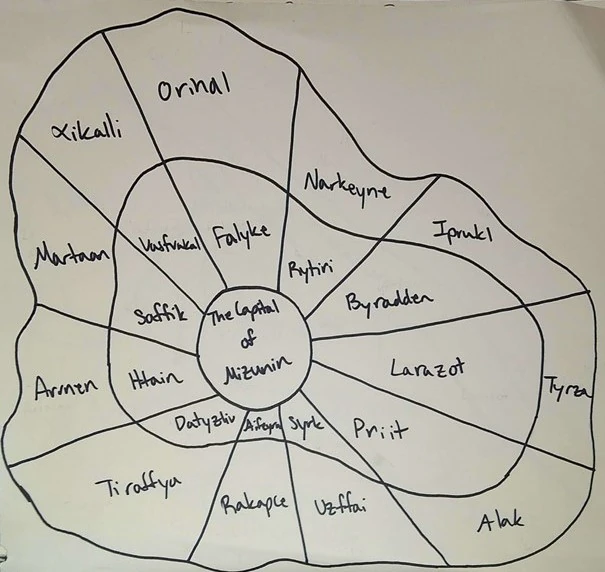 Orinal
Xikalli
Narkeyne
Iprukl
Martaan
Vasfvakal
Falyke
Rytiri
Byradden
Saffik
The Capital
of
Mizunin
Larazot
Tyrza
Armen
Htain
Datyzliv
Syrk
Priit
Tiraffya
Rakaple
Uzffai
Alak